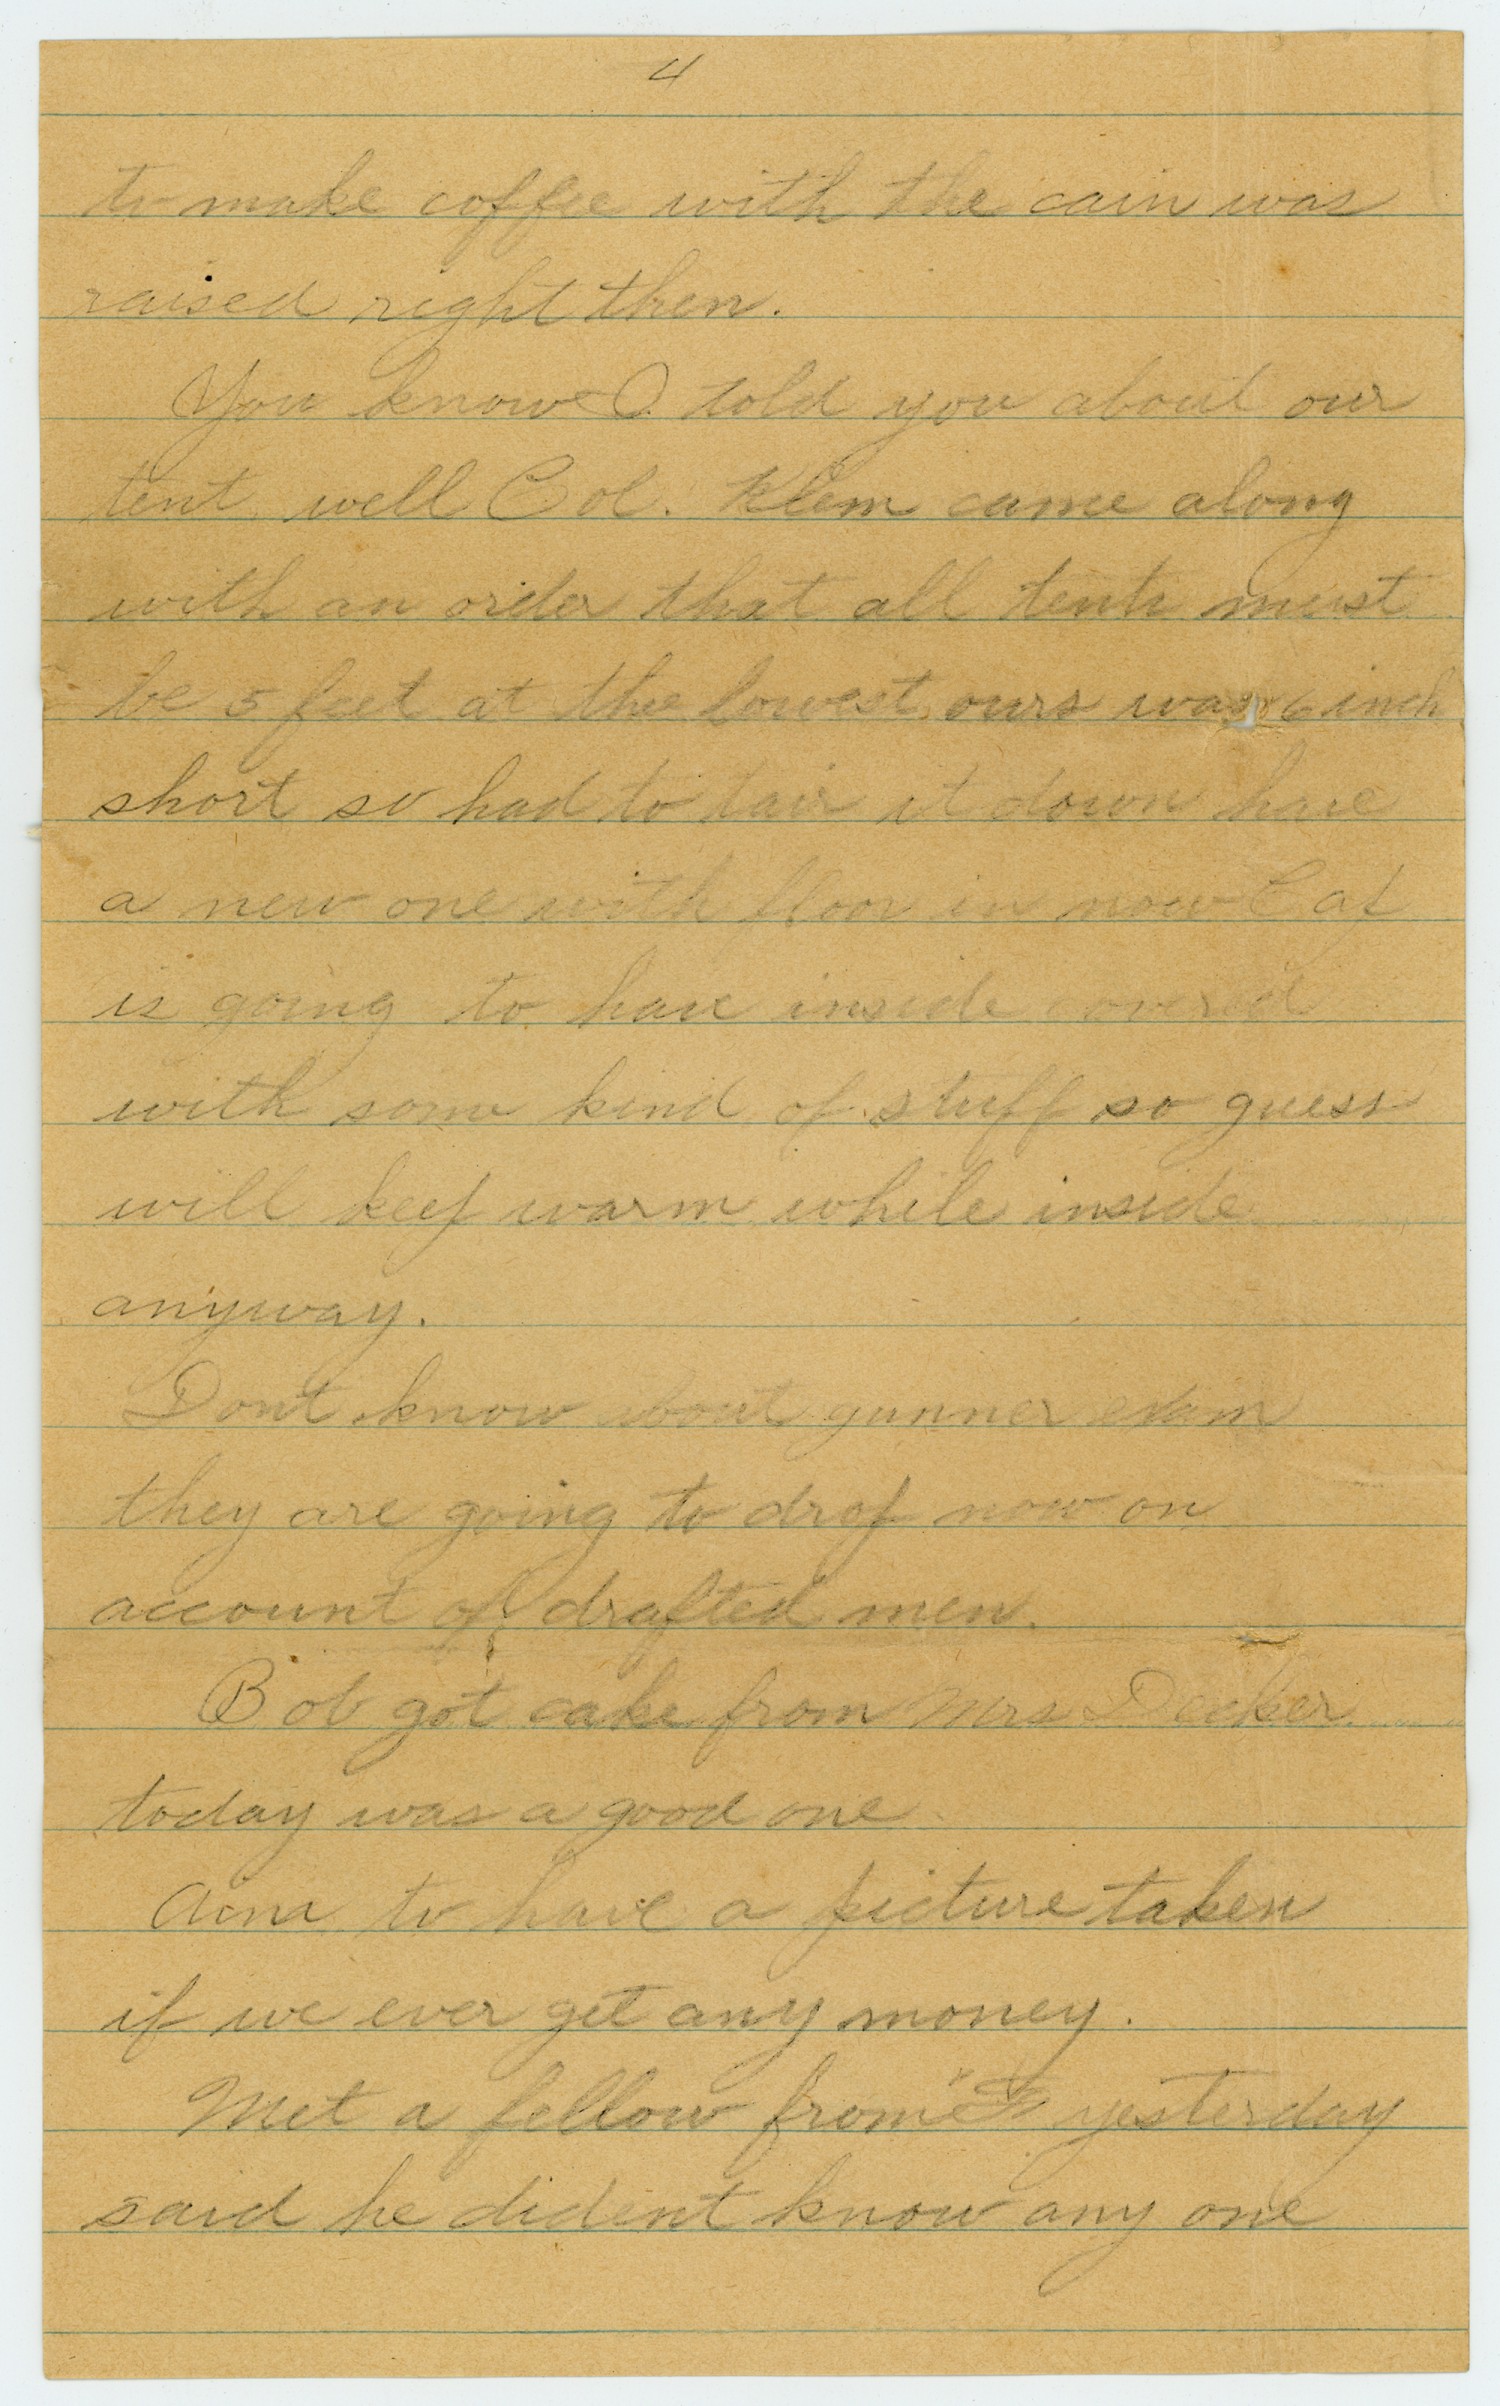 4
to make coffee with the cain was
raised right then.
You know I told you about our
tent well Col. Klem came along
with an order that all tents must
be 5 feet at the lowest ours was 6 inch
short so had to tair it down have
a new one with floor in now Cap
is going to have inside covered
with some kind of stuff so guess
will keep warm while inside
anyway.
Dont know about gunner exam
they are going to drop now on
account of drafted men.
Bob got cake from Mrs Decker
today was a good one
to have a picture taken
if we ever get any money.
Met a fellow from yesterday
said he dident know any one